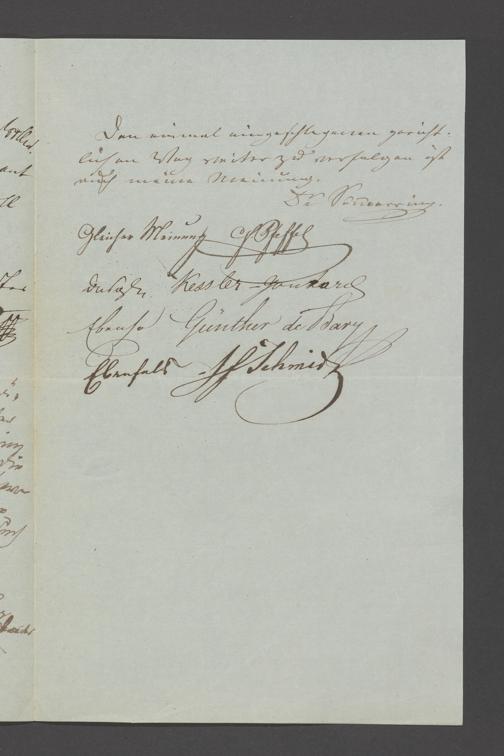 Den einmal eingeschlagenen gericht-
lichen Weg weiter zu verfolgen ist
auch meine Meinung.
Dr Soemmerring.
Gleicher Meinung CPfeffel
desgl. Kessler-Gontard
Ebenso Günther de Bary
Ebenfals Schmidt